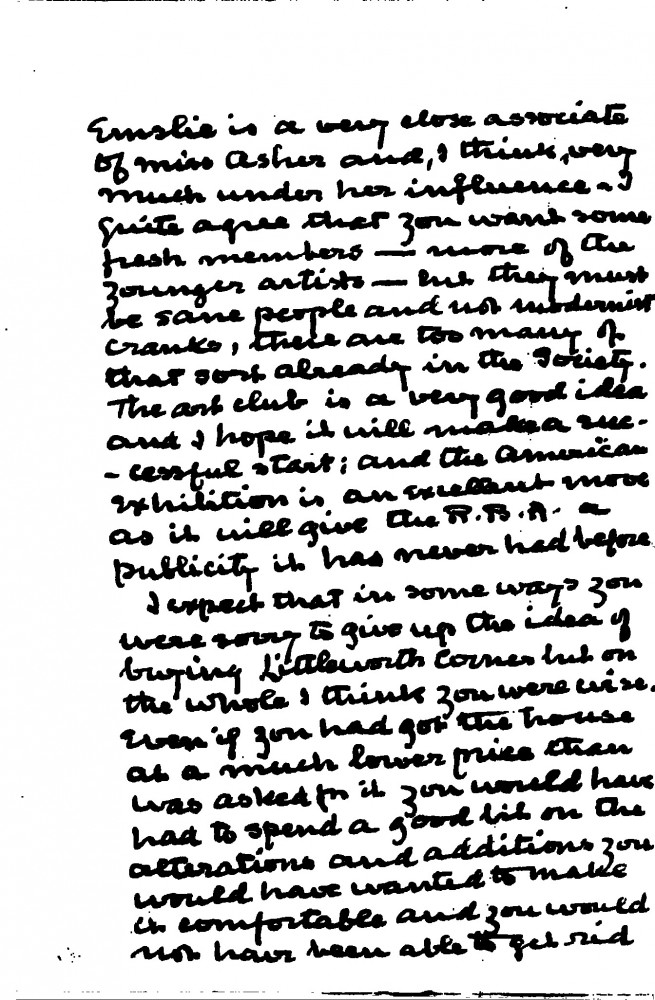 Emslie is a very close associate
of miss Asher and, I think, very
much under her influence. I
quite agree that you want some
fresh members — more of the
younger artists — but they must
be sane people and not modernist
cranks, there are too many of
that sort already in the Society.
The art club is a very good idea
and I hope it will make a suc-
-cessful start; and the American
exhibition is an excellent move
as it will give the R.B.A. a
publicity it has never had before.
I expect that in some ways you
were sorry to give up the idea of
buying Littleworth Corner but on
the whole I think you were wise.
Even if you had got the house
at a much lower price than
was asked for it you would have
had to spend a good bit on the
alterations and additions you
would have wanted to make
it comfortable and you would
not have been able to get rid